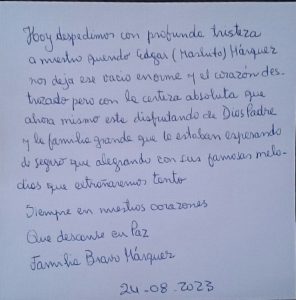 Hoy despedimos con profunda tristeza
a nuestro querido Edgar (Masluto) Márquez
nos deja ese vacio enorme y el corazón des-
truzado pero con la certeza absoluta que
ahora mismo este disfrutando de Dios Padre
y la familia grande que lo estaban esperando
de seguro que alegrando con sus famosas melo-
dias que extrañaremos tanto
Siempre en nuestros corazones
Que descanse en Paz
Familia Bravo Márquez
24-08-2023